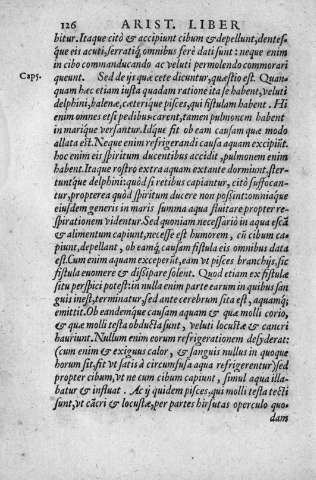 126 ARIST. LIBER
bitur. Itaque citò & accipiunt cibum & depellunt, dentesq́;
que eis acuti, serratiq́; omnibus ferè dati sunt: neque enim
in cibo commanducando ac veluti permolendo commorari
queunt. Sed de ijs quæ cete dicuntur, quæstio est. Quan-
Cap5.
quam hæc etiam iusta quadam ratione ita se habent, veluti
delphini, balenæ, cæterique pisces, qui fistulam habent. Hi
enim omnes etsi pedibus carent, tamen pulmonem habent
in marique versantur. Idque fit ob eam causam quæ modo
allata est. Neque enim refrigerandi causa aquam excipiūt.
hoc enim eis spiritum ducentibus accidit, pulmonem enim
habent. Itaque rostro extra aquam extante dormiunt, ster-
tuntq́ue delphini: quòd si retibus capiantur, citò suffocan-
tur, propterea quòd spiritum ducere non possint: omniaque
eiusdem generis in maris summa aqua fluitare propter re-
spirationem videntur. Sed quoniam necessariò in aqua escā
& alimentum capiunt, necesse est humorem, cū cibum ca-
piunt, depellant, ob eamq́; causam fistula eis omnibus data
est. Cum enim aquam exceperūt, eam vt pisces branchijs, sic
fistula euomere & dissipare solent. Quod etiam ex fistulæ
situ perspici potest: in nulla enim parte earum in quibus san
guis inest, terminatur, sed ante cerebrum sita est, aquamq́;
emittit. Ob eandemque causam aquam & quæ molli corio,
& quæ molli testa obducta sunt, veluti locustæ & cancri
hauriunt. Nullum enim eorum refrigerationem desyderat:
(cum enim & exiguus calor, & sanguis nullus in quoque
horum sit, fit vt satis à circumfusa aqua refrigerentur) sed
propter cibum, vt ne cum cibum capiunt, simul aqua illa-
batur & influat. Ac ij quidem pisces, qui molli testa tecti
sunt, vt cācri & locustæ, per partes hirsutas operculo quo-
dam